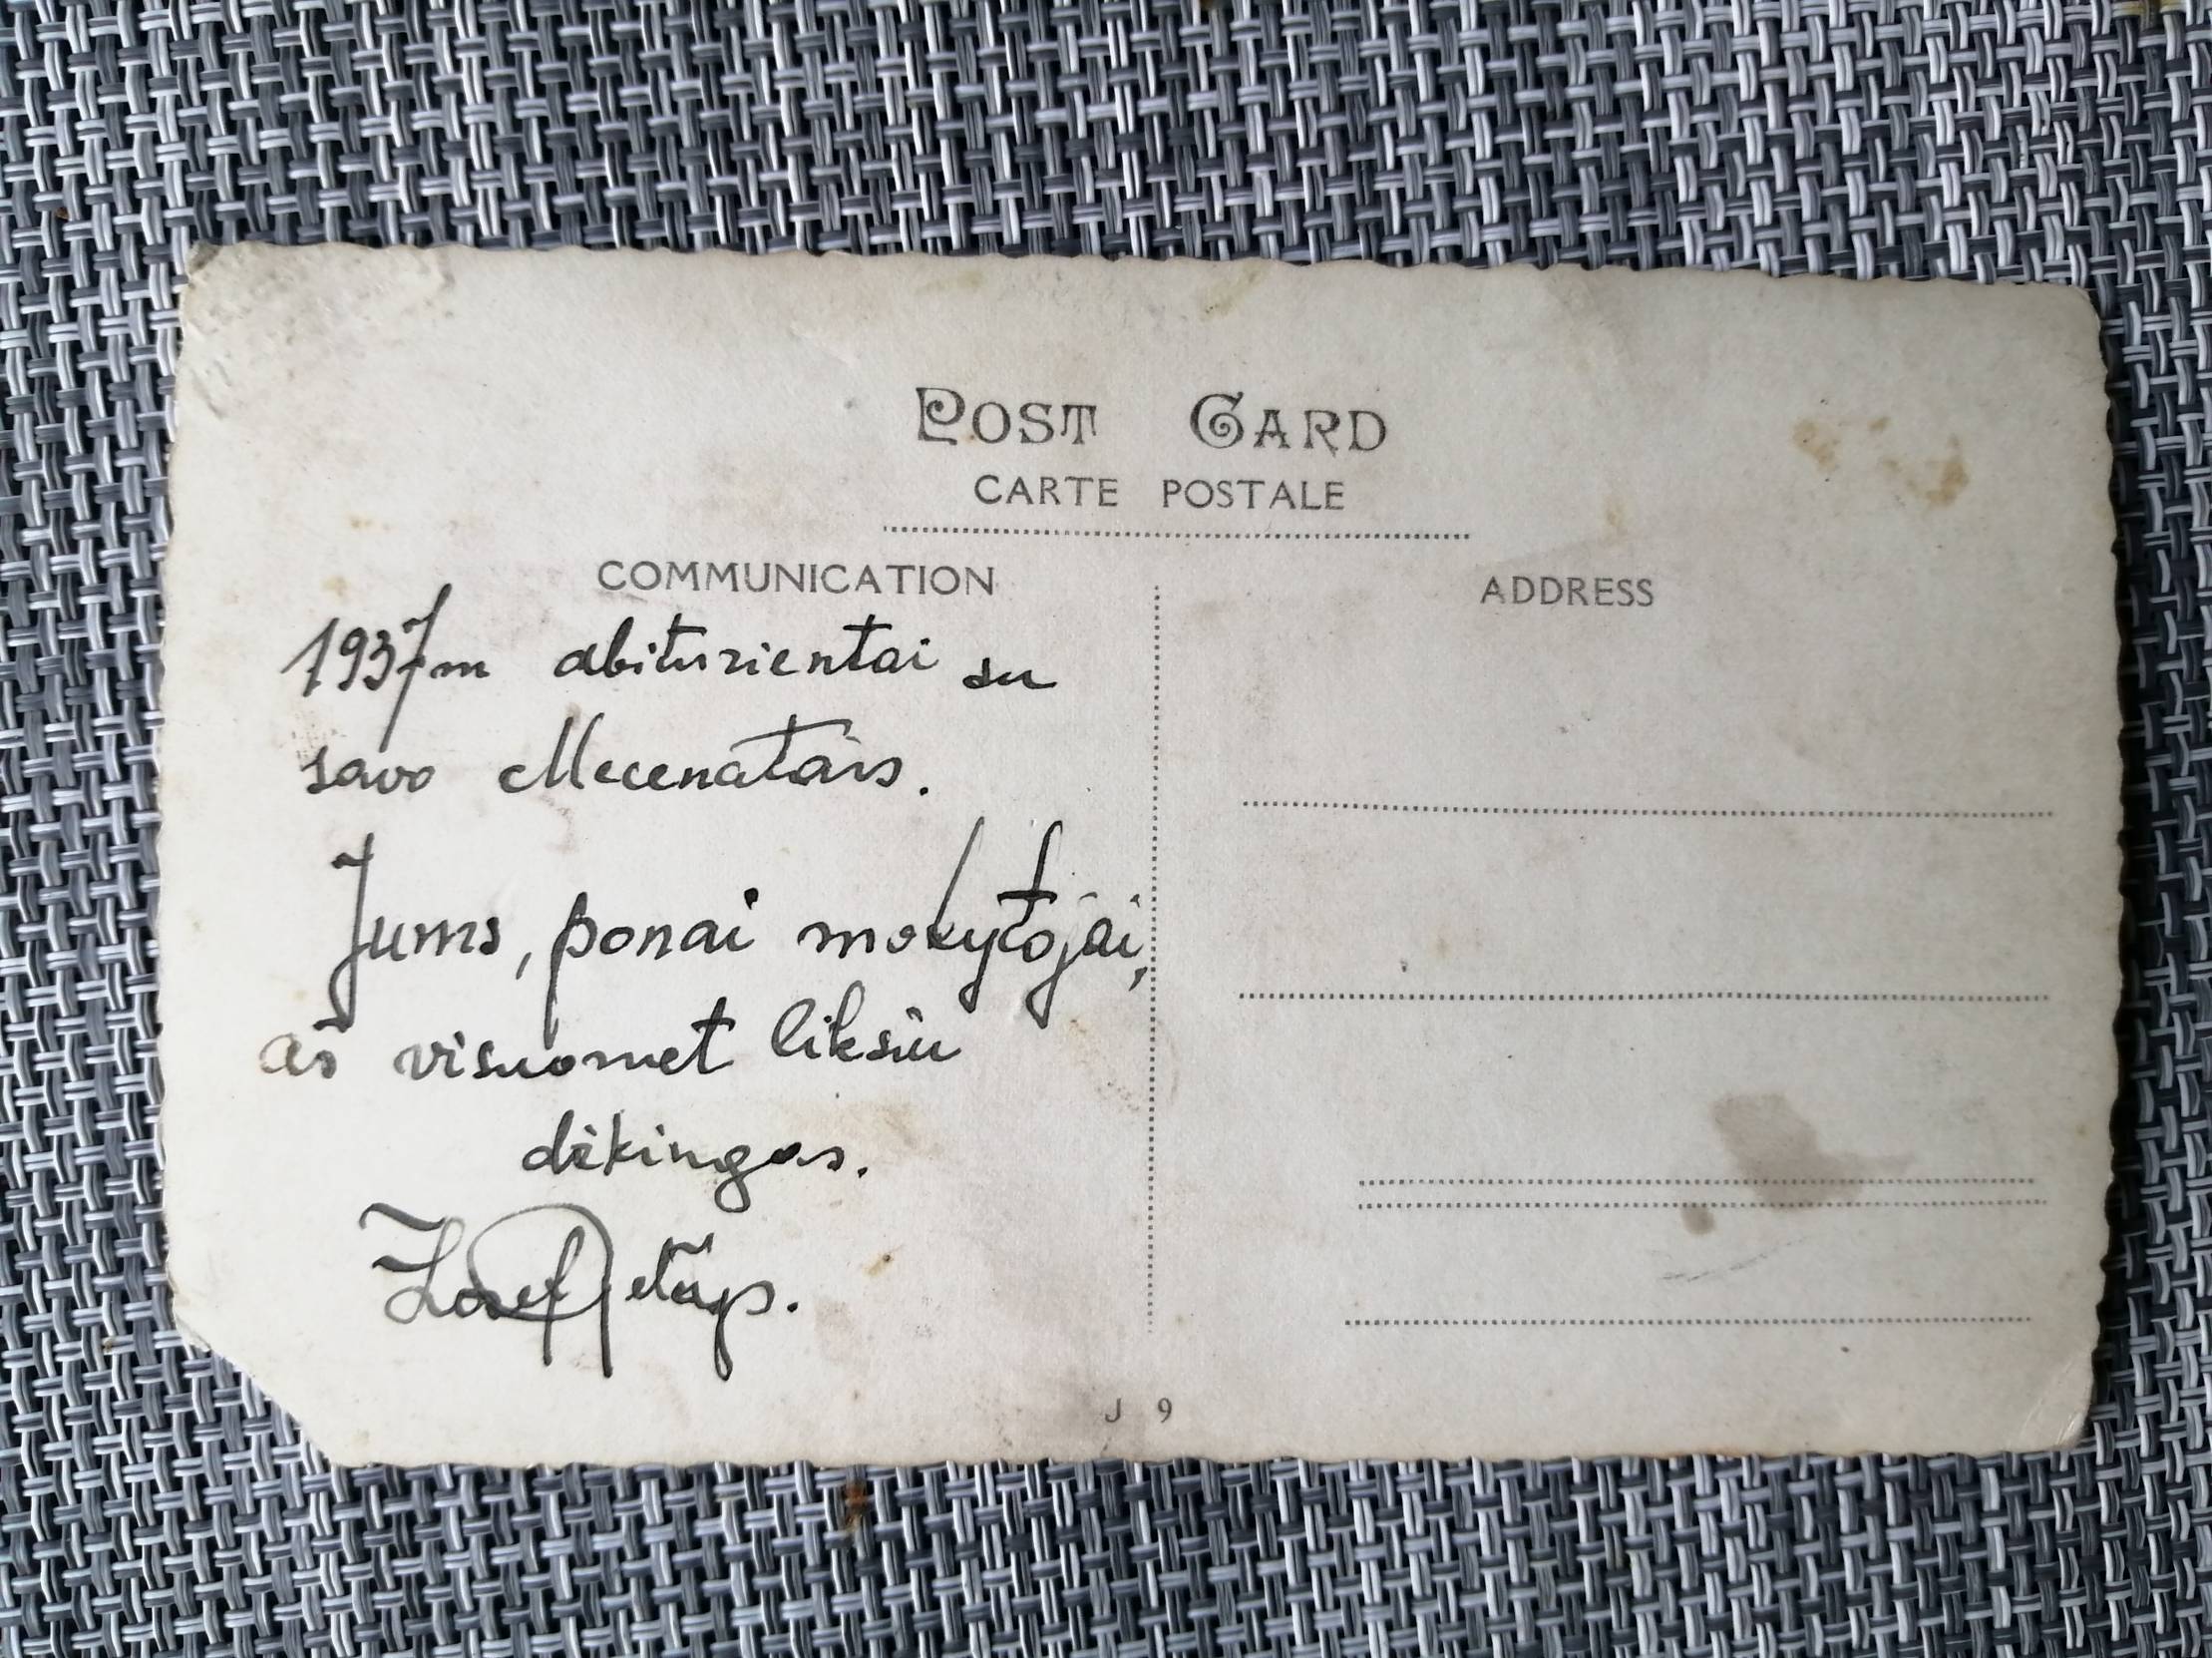 POST CARD
CARTE POSTALE
COMMUNICATION
ADDRESS
1937m abiturientai su
savo Mecenatais.
Jums, ponai mokytojai,
aš visuomet liksiu
dėkingas.
J 9